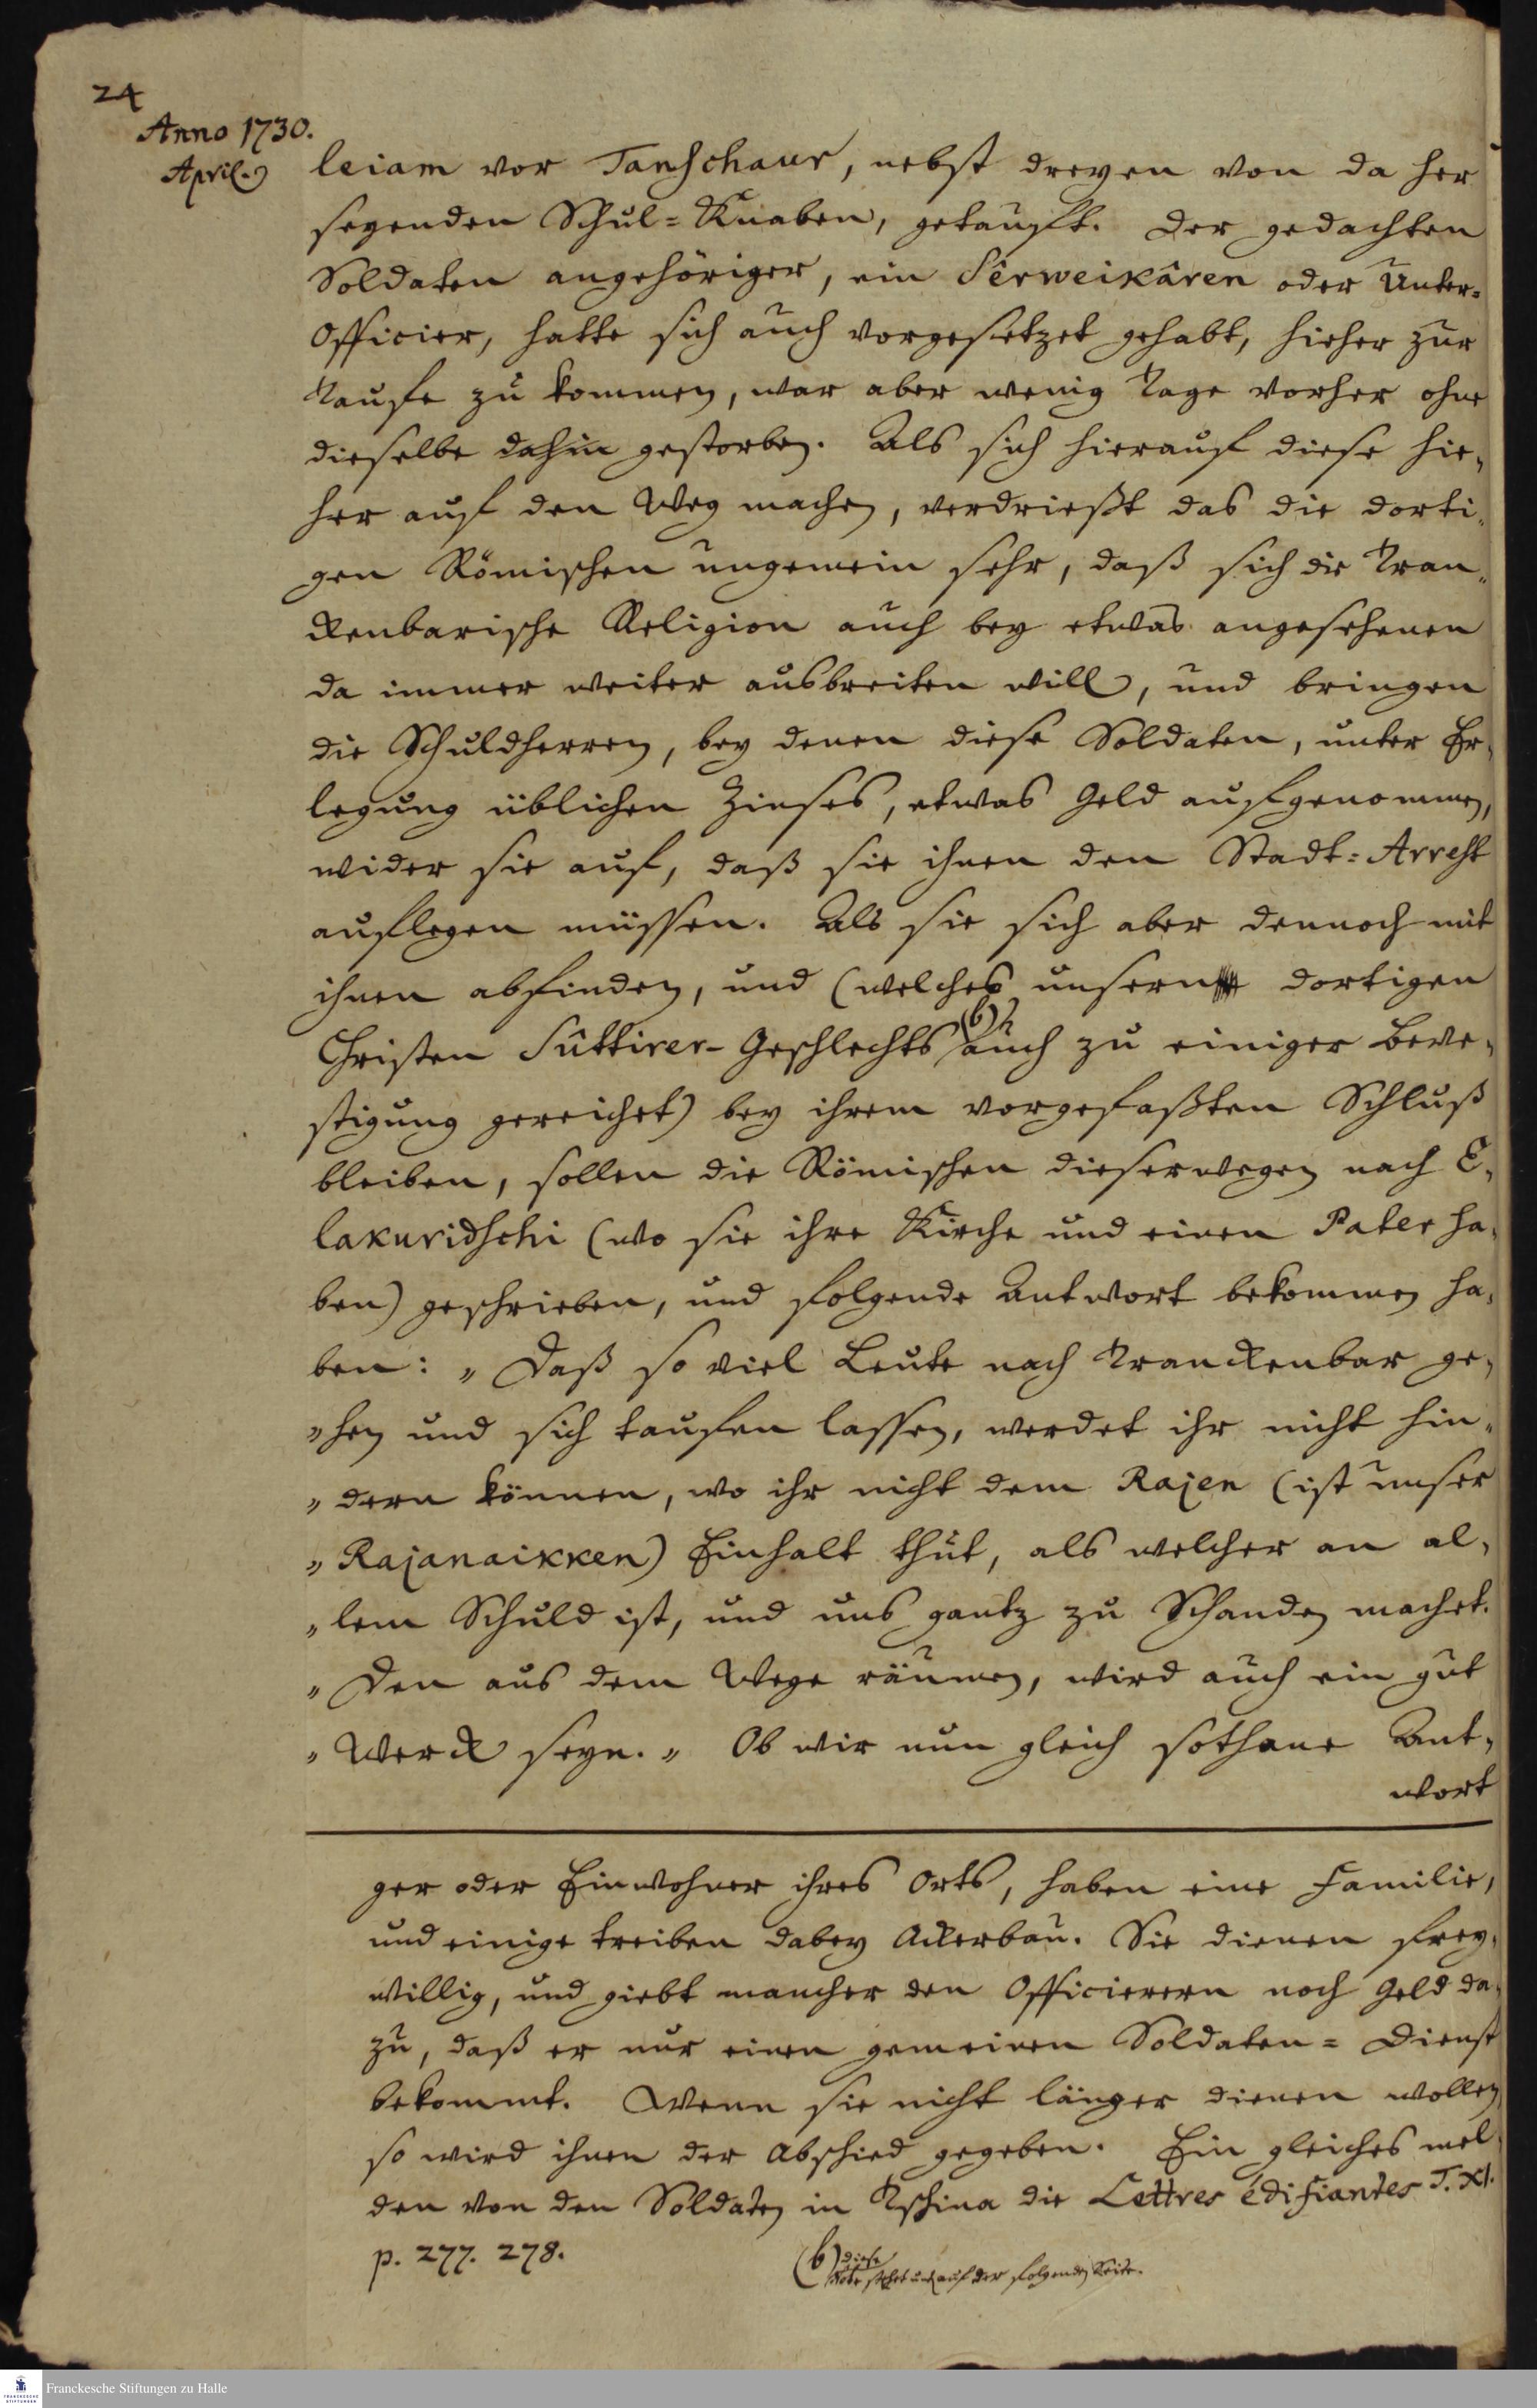 24
Anno 1730.
April.
leiam vor Tanschaur, nebst dreyen von da her
seyenden Schul=Knaben, getauft. Der gedachten
Soldaten angehöriger, ein Sêrweikâren oder Unter=
Officier, hatte sich auch vorgesetzet gehabt, hieher zur
Taufe zu kommen, war aber wenig Tage vorher ohne
dieselbe dahin gestorben. Als sich hierauf diese hie,
her auf den Weg machen, verdrießt das die dorti,
gen Römischen ungemein sehr, daß sich die Tran,
ckenbarische Religion auch bey etwas angesehenen
da immer weiter ausbreiten will, und bringen
die Schuldherren, bey denen diese Soldaten, unter Er,
legung üblichen Zinses, etwas Geld aufgenommen,
wider sie auf, daß sie ihnen den Stadt=Arrest
auflegen müssen. Als sie sich aber dennoch mit
ihnen abfinden, und (welches unsern dortigen
Christen Sûttirer-Geschlechts (b) auch zu einiger Beve,
stigung gereichet) bey ihrem vorgefaßten Schluß
bleiben, sollen die Römischen dieserwegen nach E,
lakuridschi (wo sie ihre Kirche und einen Pater ha,
ben) geschrieben, und folgende Antwort bekommen ha,
ben: „Daß so viel Leute nach Tranckenbar ge,
„hen und sich taufen lassen, werdet ihr nicht hin,
„dern können, wo ihr nicht dem Rajen (ist unser
„Rajanaikken) Einhalt thut, als welcher an al,
„lem Schuld ist, und uns gantz zu Schanden machet.
„Den aus dem Wege räumen, wird auch ein gut
„Werck seyn.„ Ob wir nun gleich sothane Ant,
wort
ger oder Einwohner ihres Orts, haben eine Familie,
und einige treiben dabey Ackerbau. Sie dienen frey,
willig, und giebt mancher den Officierern noch Geld da,
zu, daß er nur einen gemeinen Soldaten=Dienst
bekommt. Wenn sie nicht länger dienen wollen
so wird ihnen der Abschied gegeben. Ein gleiches mel,
den von den Soldaten in Tschina die Lettres édifiantes T. XI.
p. 277. 278.
(b) diese
Note stehet auf der folgenden Seite.
Franckesche Stiftungen zu Halle